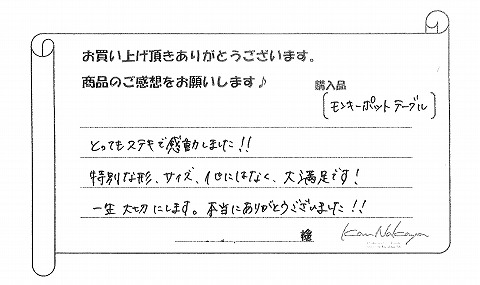 お買い上げ頂きありがとうございます。
商品のご感想をお願いします♪
購入品
[モンキーポットテーブル]
とってもステキで感動しました!!
特別な形、サイズ、他にはなく、大満足です!
一生大切にします。本当にありがとうございました!!
様